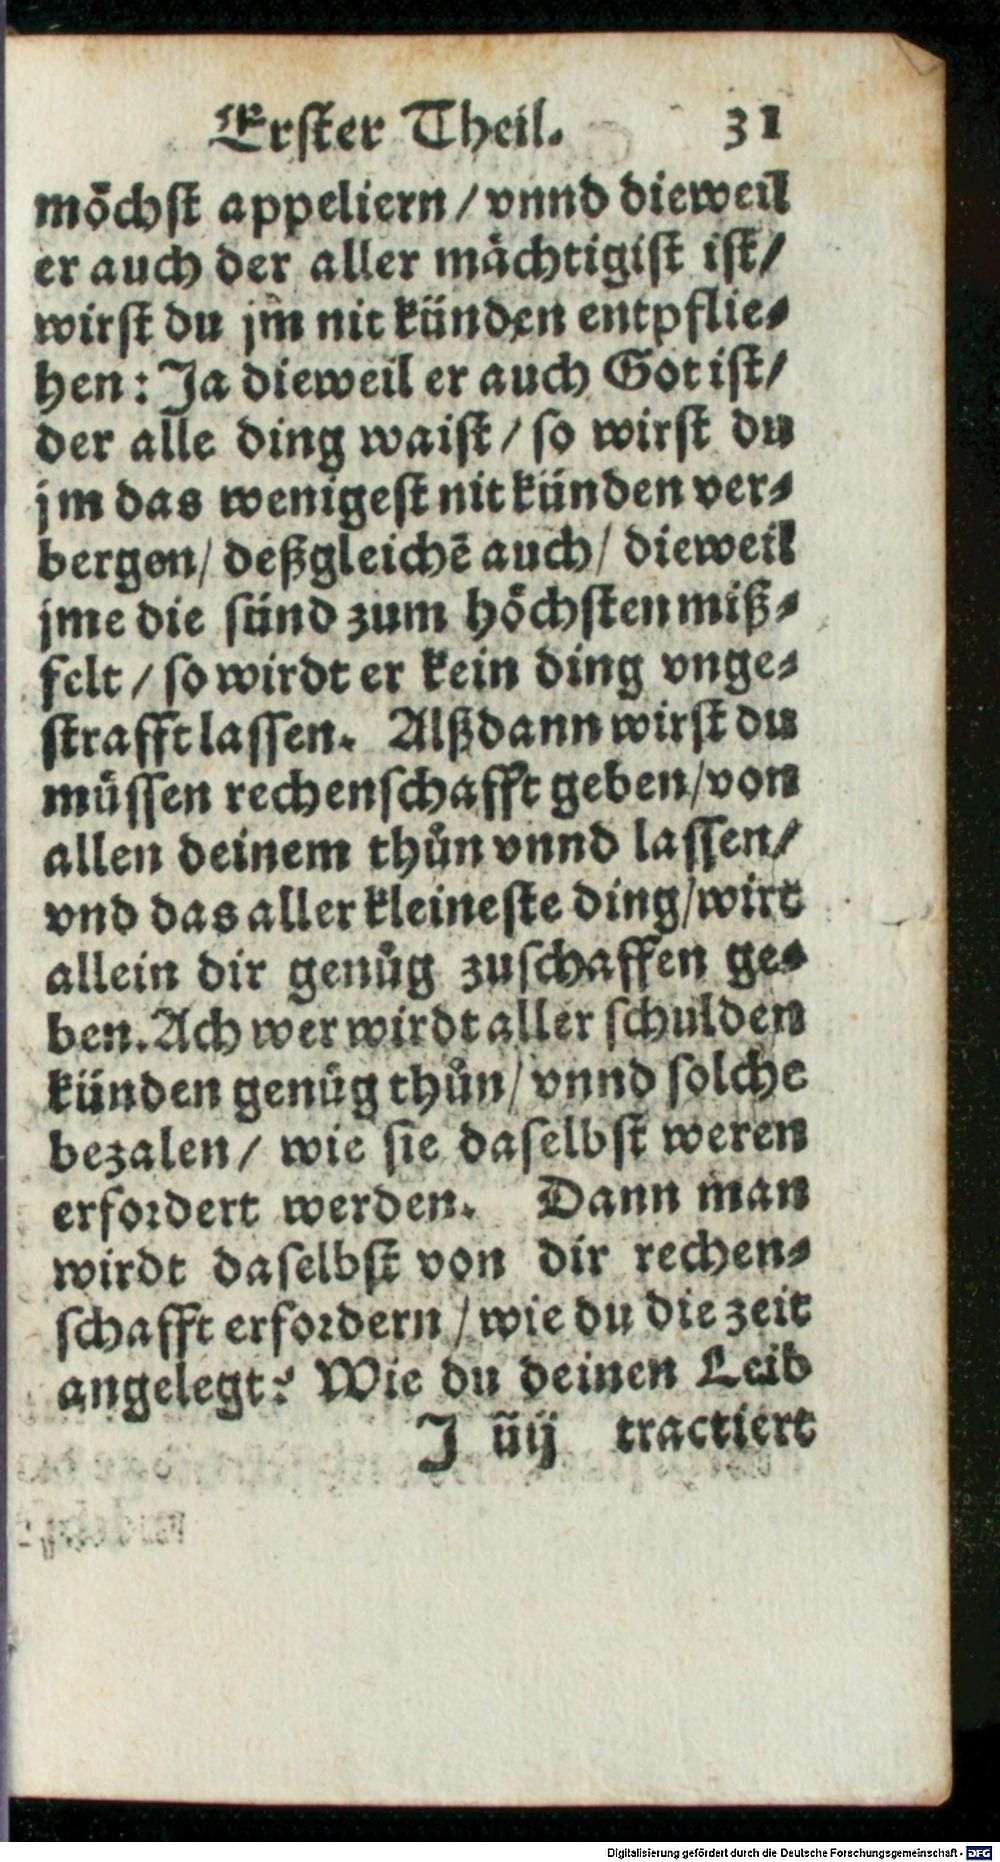 Erster Theil. 31
möchst appeliern / vnnd dieweil
er auch der aller mächtigist ist /
wirst du jm nit künden entpflie-
hen: Ja dieweil er auch Got ist /
der alle ding waist / so wirst du
jm das wenigest nit künden ver-
bergen / deßgleichē auch / dieweil
jme die sünd zum höchsten miß-
felt / so wirdt er kein ding vnge-
strafft lassen. Alßdann wirst du
müssen rechenschafft geben / von
allen deinem thůn vnnd lassen /
vnd das aller kleineste ding / wirt
allein dir genůg zuschaffen ge-
ben. Ach wer wirdt aller schulden
künden genůg thůn / vnnd solche
bezalen / wie sie daselbst weren
erfordert werden. Dann man
wirdt daselbst von dir rechen-
schafft erfordern / wie du die zeit
angelegt? Wie du deinen Leib
J iiij tractiert
Digitalisierung gefördert durch die Deutsche Forschungsgemeinschaft - DFG